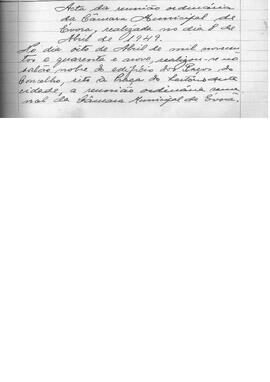 Acta da reunião ordinária
da Câmara Municipal de
Evora, realizada no dia 8 de
Abril de 1949.
No dia oito de Abril de mil novecen-
tos e quarenta e nove, realizou-se no
salão nobre do edificio dos Paços do
Concelho, sito à Praça do Sertório desta
cidade, a reunião ordinária sema-
nal da Câmara Municipal de Evora.